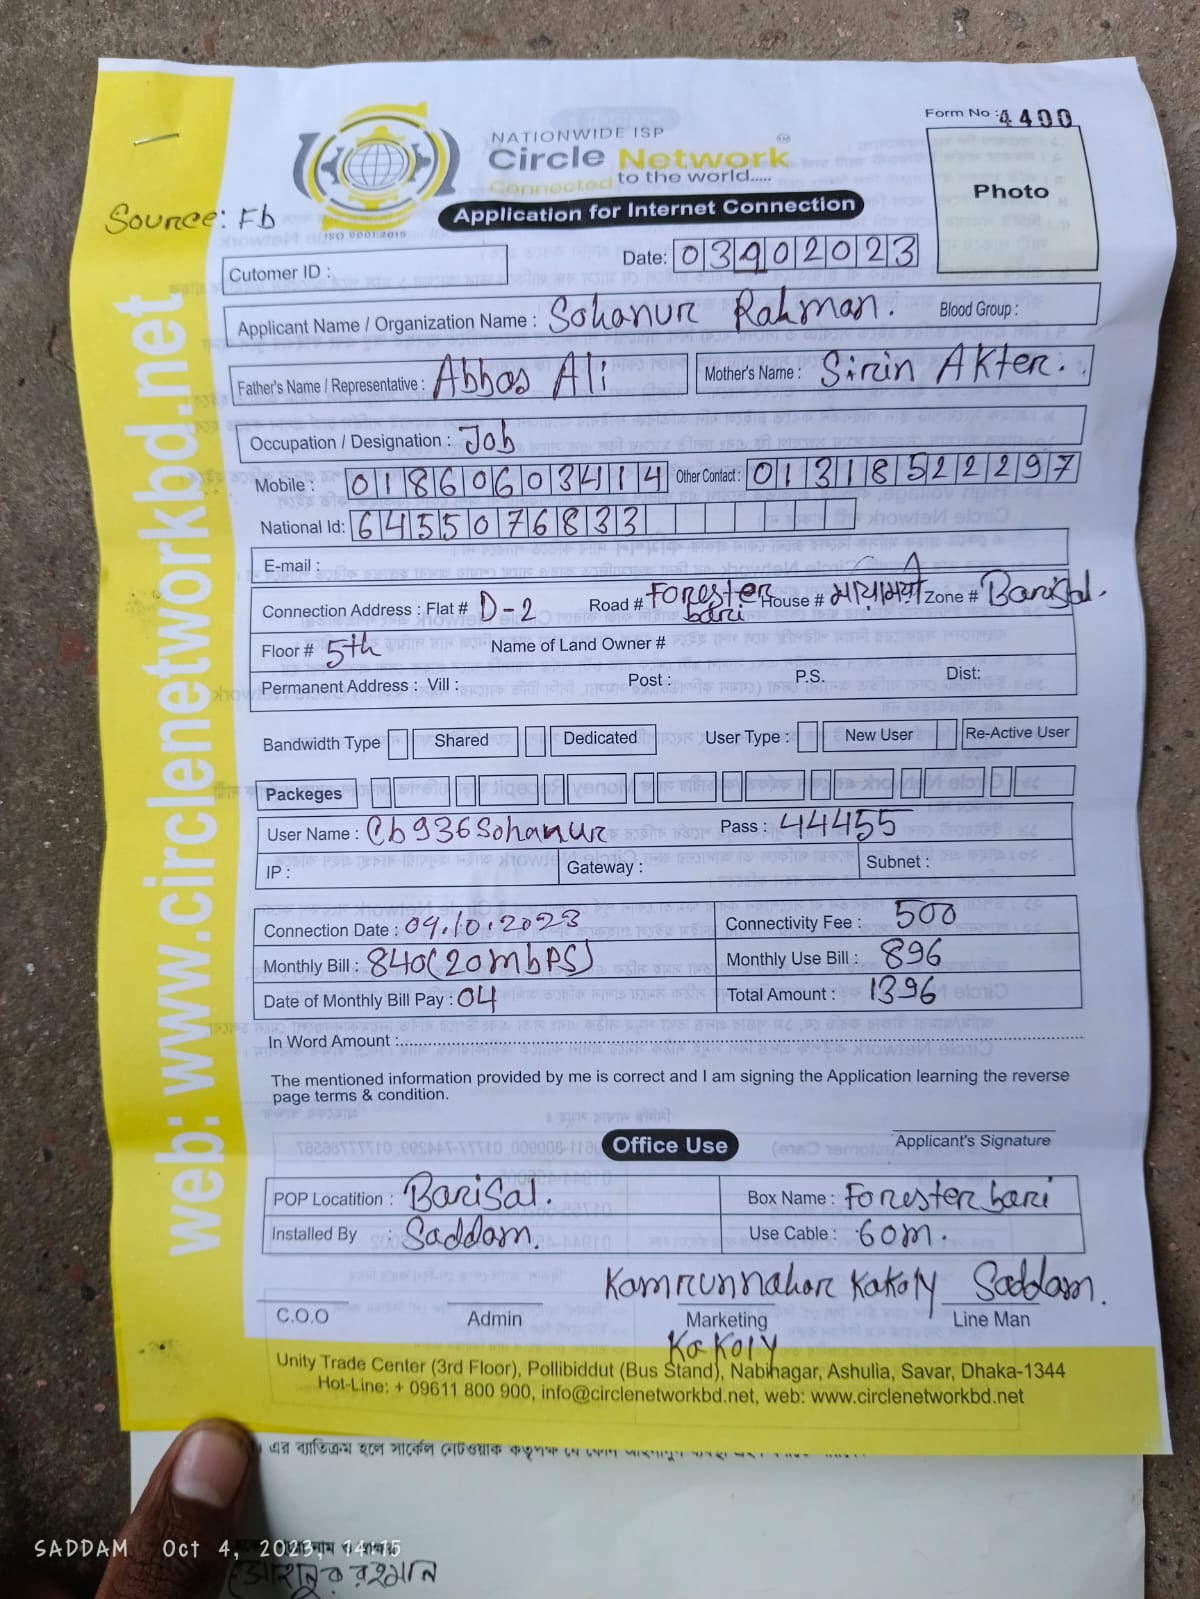 Form No : 4400
NATIONWIDE ISP
Circle Network
Connected to the world.....
Photo
Source: Fb
ISO 9001:2015
Application for Internet Connection
Cutomer ID :
Date: 03902023
Applicant Name / Organization Name : Sohanur Rahman. Blood Group :
Father's Name / Representative : Abbas Ali Mother's Name : Sirin Akter.
Occupation / Designation : Job
Mobile : 01860603414 Other Contact : 01318522297
National Id: 6455076833
E-mail :
Connection Address : Flat # D-2 Road # Forester bari House # মায়াময়ী Zone # Barisal.
Floor # 5th Name of Land Owner #
Permanent Address : Vill : Post : P.S. Dist:
Bandwidth Type Shared Dedicated User Type : New User Re-Active User
Packeges
User Name : Cb936Sohanur Pass : 44455
IP : Gateway : Subnet :
Connection Date : 04.10.2023 Connectivity Fee : 500
Monthly Bill : 840(20mbPS) Monthly Use Bill : 896
Date of Monthly Bill Pay : 04 Total Amount : 1396
In Word Amount :
The mentioned information provided by me is correct and I am signing the Application learning the reverse
page terms & condition.
Applicant's Signature
Office Use
POP Locatition : Barisal. Box Name : Forester bari
Installed By : Saddam. Use Cable : 60m.
Kamrunnahar Kakoly Saddam.
C.O.O Admin Marketing Line Man
Kakoly
Unity Trade Center (3rd Floor), Pollibiddut (Bus Stand), Nabinagar, Ashulia, Savar, Dhaka-1344
Hot-Line: + 09611 800 900, info@circlenetworkbd.net, web: www.circlenetworkbd.net
web: www.circlenetworkbd.net
এর ব্যাতিক্রম হলে সার্কেল নেটওয়াক কতৃপক্ষ যে কোন
SADDAM Oct 4, 2023, 14:15
সোহানুর রহমান